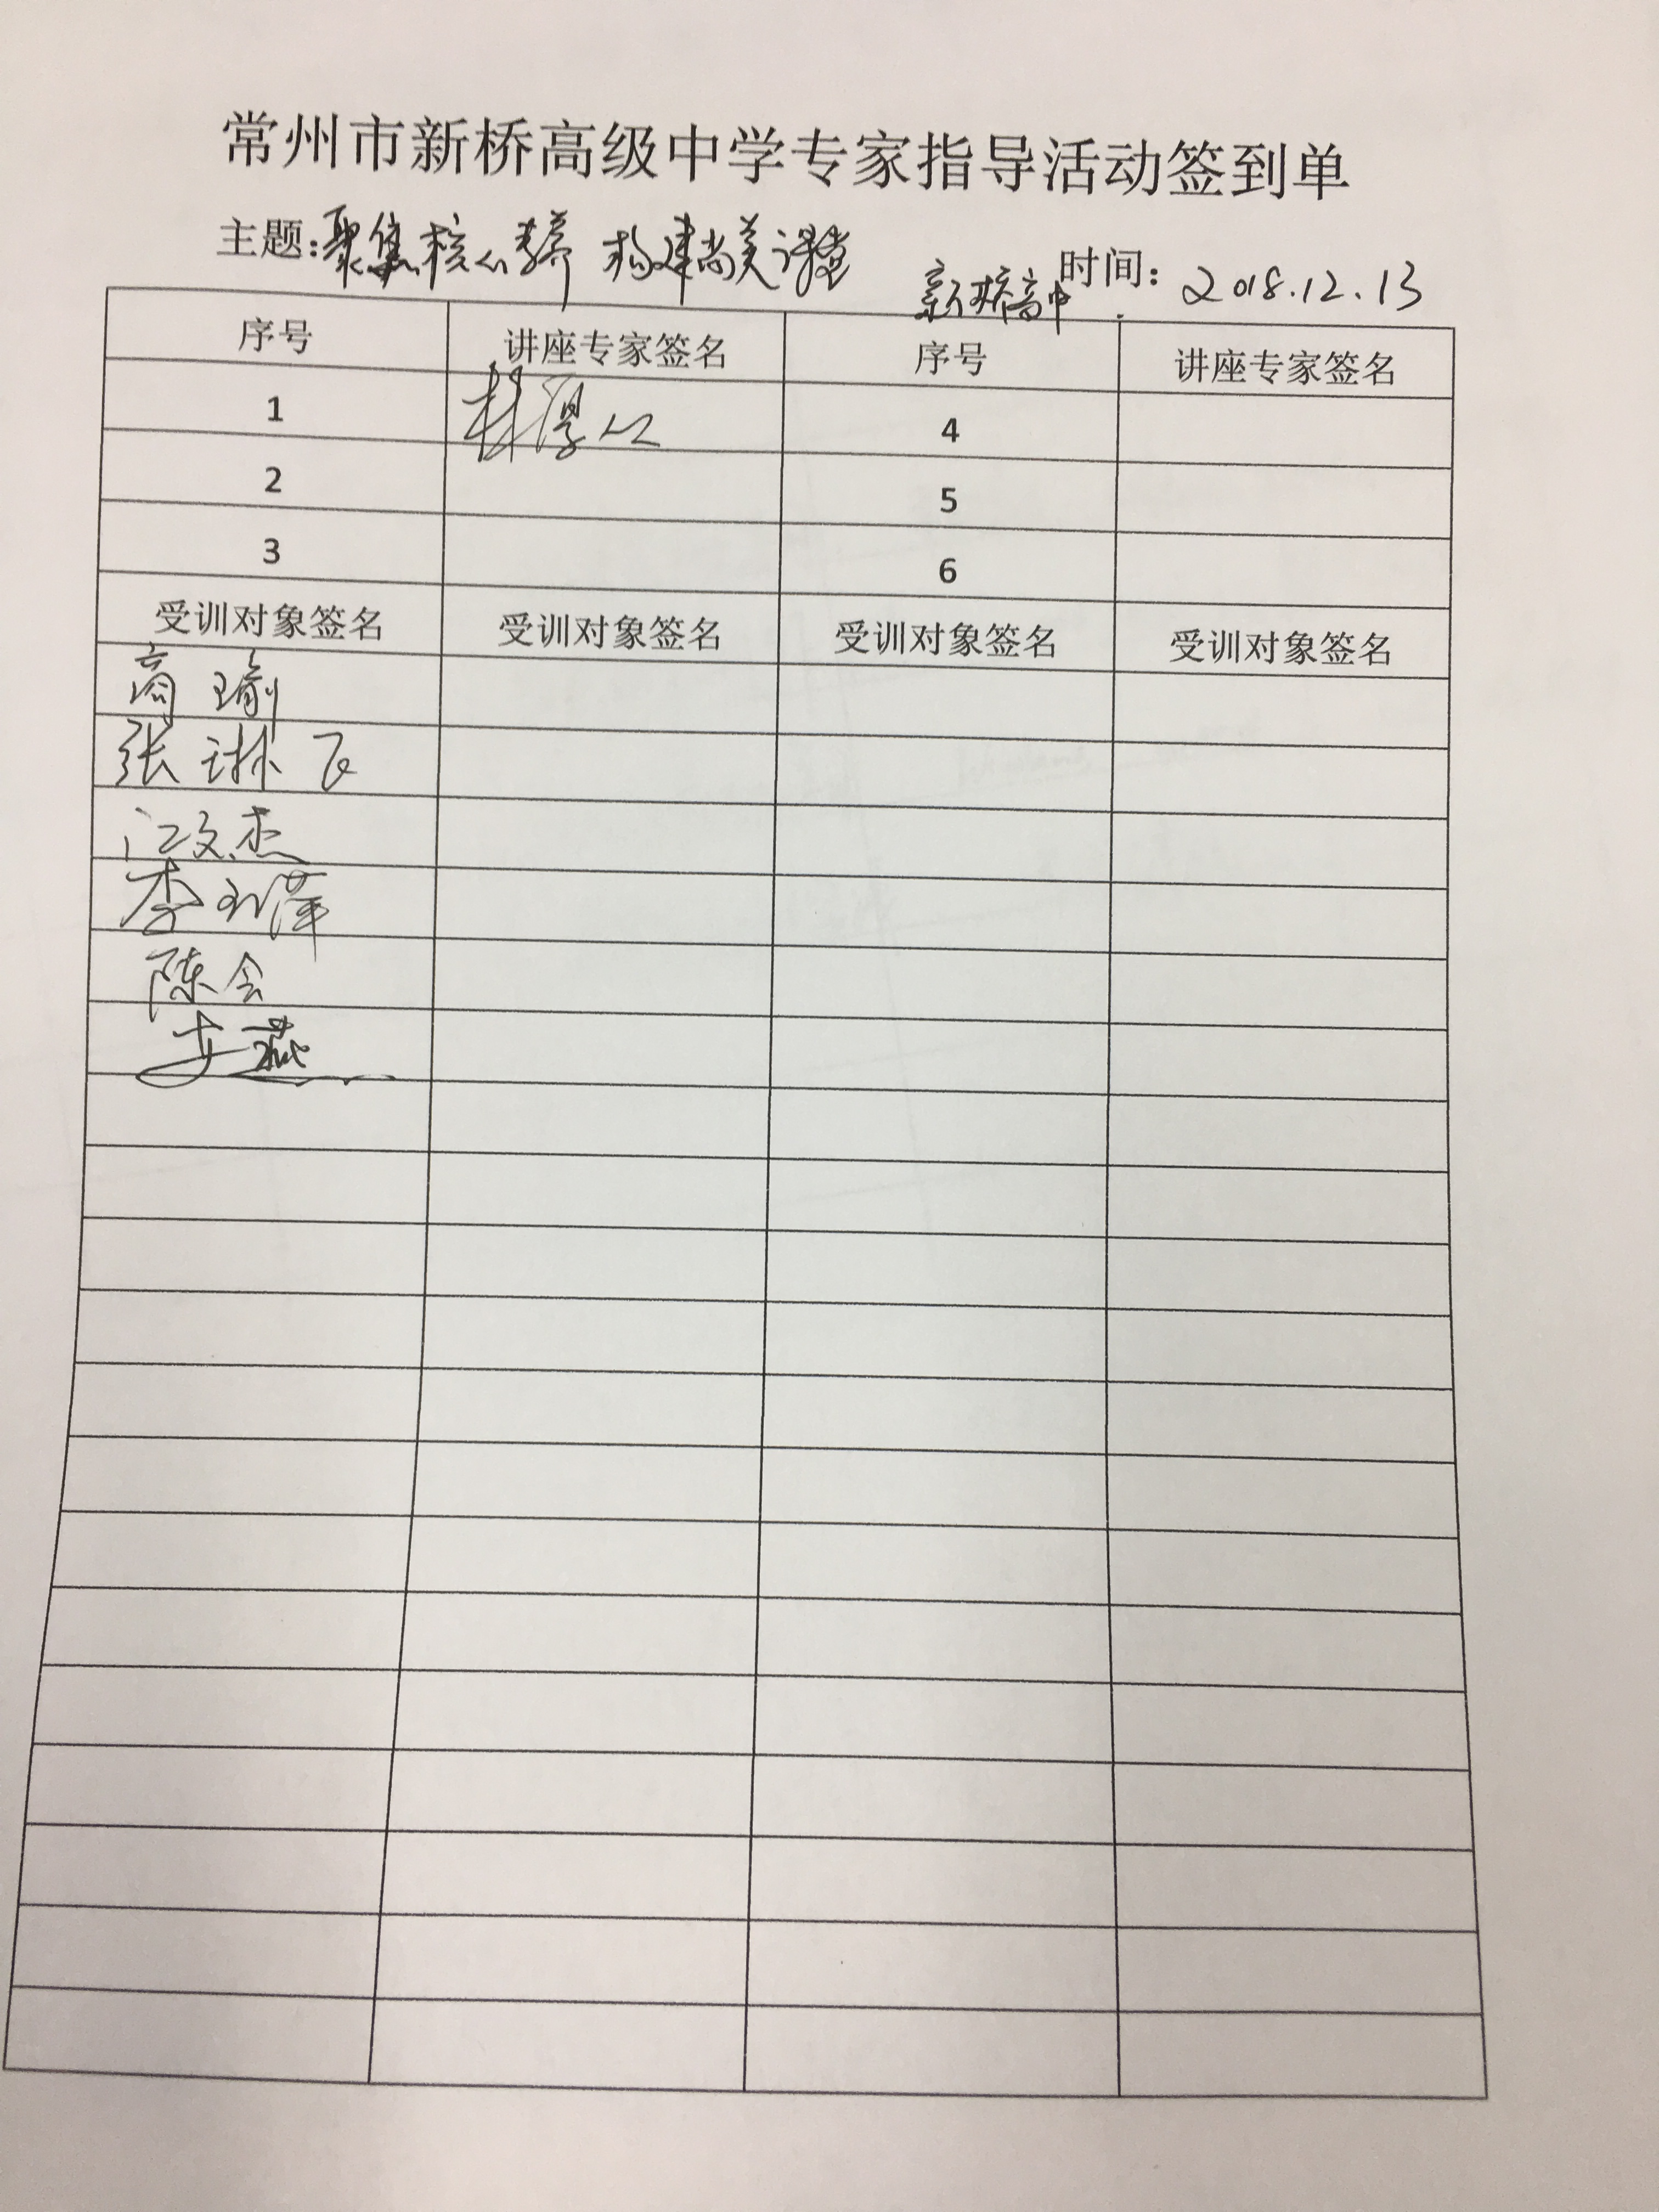 常州市新桥高级中学专家指导活动签到单
主题:聚焦核心素养 构建尚美课堂 新桥高中 时间: 2018.12.13
序号 讲座专家签名 序号 讲座专家签名
1 4
2 5
3 6
受训对象签名 受训对象签名 受训对象签名 受训对象签名
高瑜
张琳
江文杰
李 萍
陈会
燕